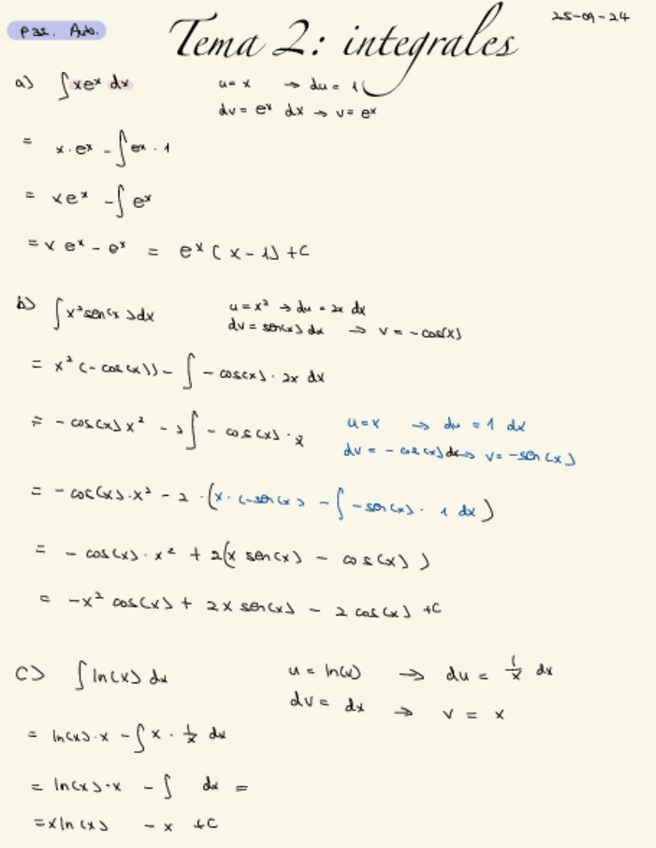 P32. Auto.
Tema 2: integrales
25-09-24
a) ∫xeˣ dx u=x → du = 1
dv = eˣ dx → v= eˣ
= x·eˣ - ∫eˣ · 1
= xeˣ - ∫eˣ
= x eˣ - eˣ = eˣ (x-1) +C
b) ∫x²sen(x)dx u=x² → du = 2x dx
dv = sen(x) dx → v = -cos(x)
= x² (-cos(x)) - ∫ -cos(x) · 2x dx
= -cos(x)x² - 2∫ -cos(x) · x u=x → du = 1 dx
dv = -cos(x)dx → v= -sen(x)
= -cos(x)·x² - 2 · (x·(-sen(x) - ∫-sen(x) · 1 dx)
= -cos(x)·x² + 2(x sen(x) - cos(x))
= -x² cos(x) + 2x sen(x) - 2 cos(x) +C
c) ∫ln(x) dx u = ln(x) → du = 1/x dx
dv = dx → v = x
= ln(x)·x - ∫x · 1/x dx
= ln(x)·x - ∫ dx =
= xln(x) - x +C